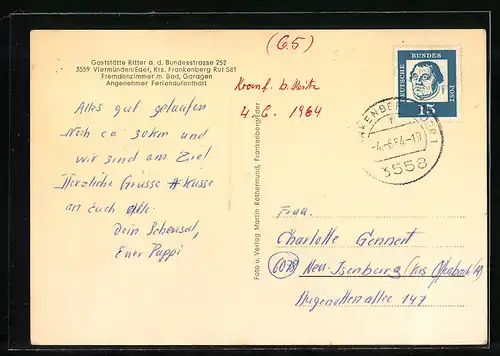 Gaststätte Ritter a. d. Bundesstrasse 252
3559 Viermünden/Eder, Krs. Frankenberg Ruf 581
Fremdenzimmer m. Bad, Garagen
Angenehmer Ferienaufenthalt
(65)
4. 6. 1964
DEUTSCHE BUNDES POST
15
-4.-6.64-19
3558
Alles gut gelaufen
Noch ca 30 km und
wir sind am Ziel
Herzliche Grüsse + Küsse
an Euch alle.
Dein Scheusal,
Euer Pappi
Foto u. Verlag Martin Rothermund, Frankenberg/Eder
Frau
Charlotte Gennert
6078 Neu-Isenburg (Krs Offenbach)
Hugenottenallee 147